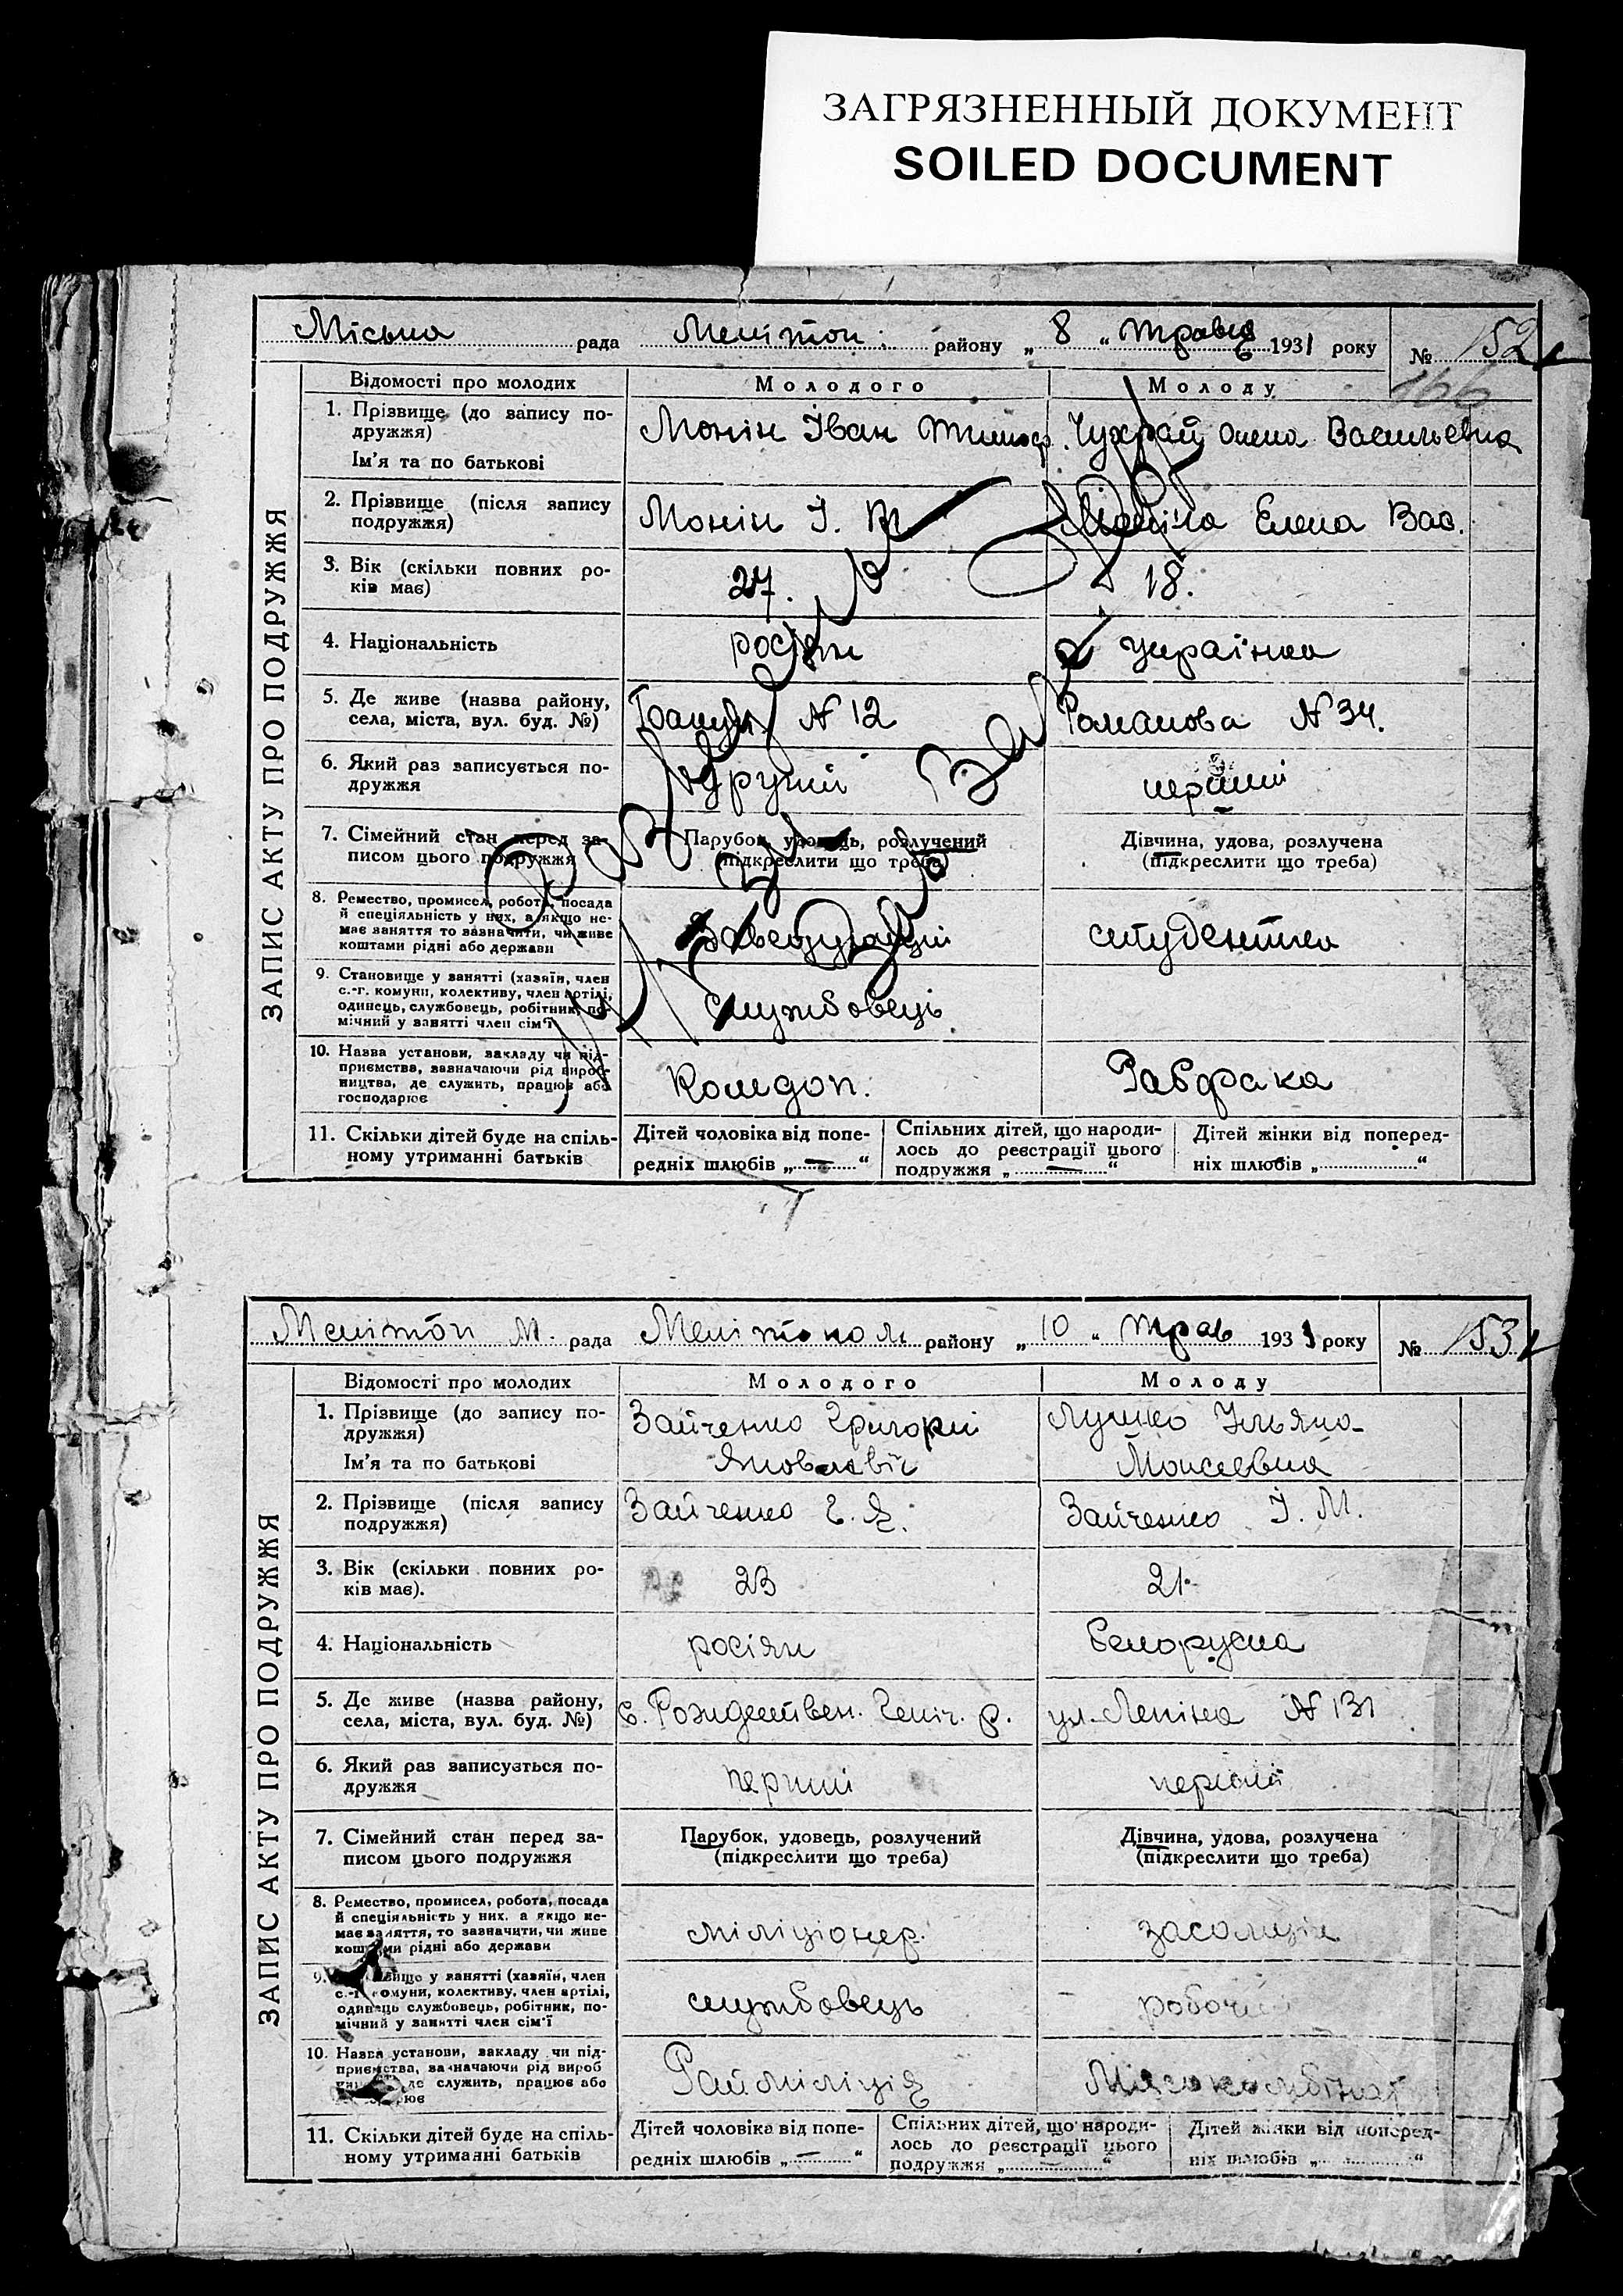 ЗАГРЯЗНЕННЫЙ ДОКУМЕНТ
SOILED DOCUMENT
Міська рада Мелітоп. району „ 8 “ травня 1931 року № 152
166
ЗАПИС АКТУ ПРО ПОДРУЖЖЯ
Відомості про молодих Молодого Молоду
1. Прізвище (до запису подружжя) Ім'я та по батькові Монін Іван Тимоф. Чухрай Олена Васильевна
2. Прізвище (після запису подружжя) Монін І. Т. Моніна Елена Вас.
3. Вік (скільки повних років має) 27. 18.
4. Національність росіян українка
5. Де живе (назва району, села, міста, вул. буд. №) № 12 Романова № 34.
6. Який раз записується подружжя другий перший
7. Сімейний стан перед записом цього подружжя Парубок, удовець, розлучений (підкреслити що треба) Дівчина, удова, розлучена (підкреслити що треба)
8. Ремество, промисел, робота, посада й спеціяльність у них, а якщо немає заняття то зазначити, чи живе коштами рідні або держави Заведующий студентка
9. Становище у занятті (хазяїн, член с.-г. комуни, колективу, член артілі, одинець, службовець, робітник, помічний у занятті член сім'ї службовець
10. Назва установи, закладу чи підприємства, зазначаючи рід виробництва, де служить, працює або господарює Рабфака
11. Скільки дітей буде на спільному утриманні батьків Дітей чоловіка від попередніх шлюбів „—“ Спільних дітей, що народилось до реєстрації цього подружжя „—“ Дітей жінки від попередніх шлюбів „ “
Мелітоп М. рада Мелітопол району „ 10 “ трав 1931 року № 153
ЗАПИС АКТУ ПРО ПОДРУЖЖЯ
Відомості про молодих Молодого Молоду
1. Прізвище (до запису подружжя) Ім'я та по батькові Зайченко Григорий Яковлевіч Лушко Ульяна Моисеевна
2. Прізвище (після запису подружжя) Зайченко Г. Я. Зайченко І. М.
3. Вік (скільки повних років має). 23 21
4. Національність росіян белоруска
5. Де живе (назва району, села, міста, вул. буд. №) с. Рождествен. Геніч. р. ул. Леніна № 131
6. Який раз записується подружжя перший перший
7. Сімейний стан перед записом цього подружжя Парубок, удовець, розлучений (підкреслити що треба) Дівчина, удова, розлучена (підкреслити що треба)
8. Ремество, промисел, робота, посада й спеціяльність у них, а якщо немає заняття, то зазначити, чи живе коштами рідні або держави міліціонер.
9. у занятті (хазяїн, член с.-г. комуни, колективу, член артілі, одинець службовець, робітник, помічний у занятті член сім'ї службовець
10. Назва установи, закладу чи підприємства, зазначаючи рід вироб де служить, працює або Райміліція Мясокомбінат
11. Скільки дітей буде на спільному утриманні батьків Дітей чоловіка від попередніх шлюбів „—“ Спільних дітей, що народилось до реєстрації цього подружжя „—“ Дітей жінки від попередніх шлюбів „ “